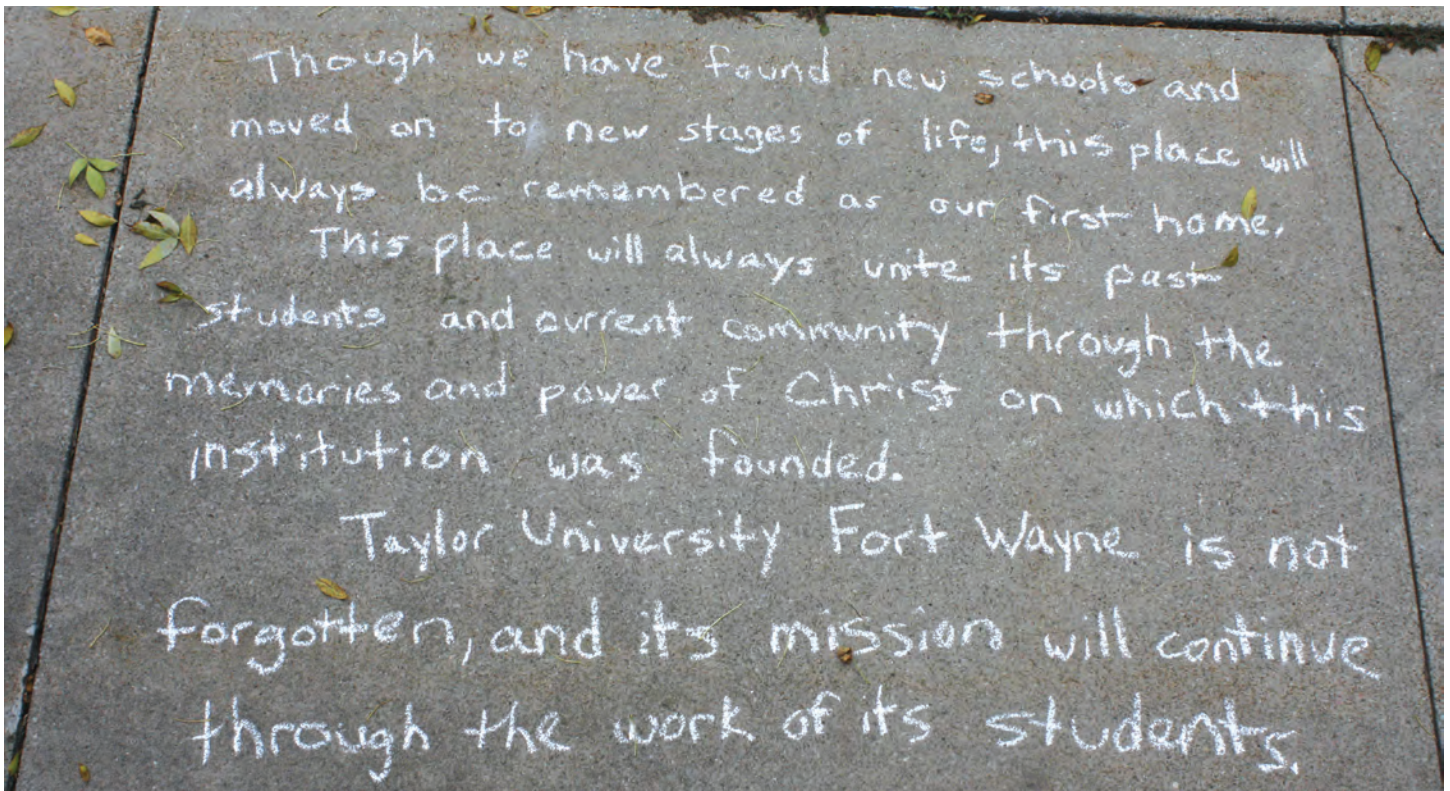 Though we have found new schools and
moved on to new stages of life, this place will
always be remembered as our first home.
This place will always unite its past
students and current community through the
memories and power of Christ on which this
institution was founded.
Taylor University Fort Wayne is not
forgotten, and its mission will continue
through the work of its students.